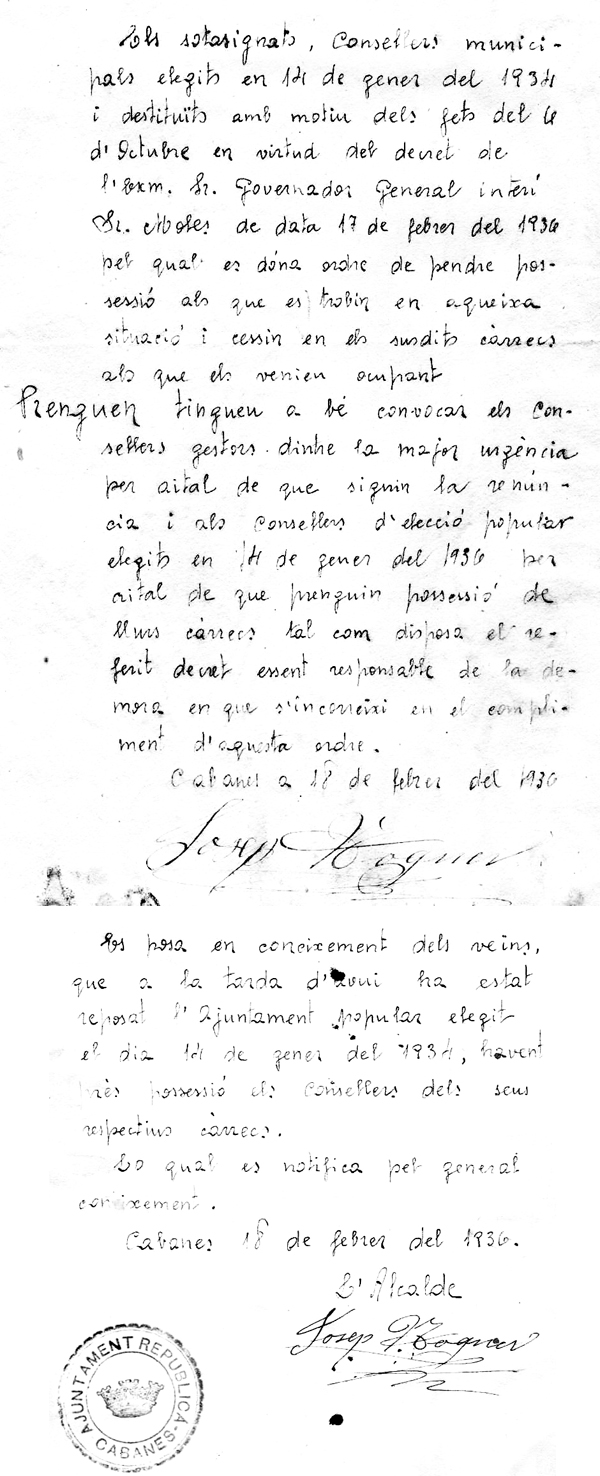 Els sotasignats, Consellers munici-
pals elegits en 14 de gener del 1934
i destituïts amb motiu dels fets del 6
d'Octubre en virtud del decret de
l'Exm. Sr. Governador General interí
Sr. Moles de data 17 de febrer del 1936
pel qual es dóna ordre de pendre pos-
sessió als que es trobin en aqueixa
situació i cessin en els susdits càrrecs
als que els venien ocupant
Prenguen tinguen a bé convocar els Con-
sellers gestors dinhe la major urgència
per aital de que siguin la renún-
cia i als Consellers d'elecció popular
elegits en 14 de gener del 1936 per
aital de que prenguin possessió de
llurs càrrecs tal com disposa el re-
ferit decret essent responsable de la de-
mora en que s'incorreixi en el compli-
ment d'aquesta ordre.
Cabanes a 18 de febrer del 1936
Josep
Es posa en coneixement dels veïns,
que a la tarda d'avui ha estat
reposat l'Ajuntament popular elegit
el dia 14 de gener del 1934, havent
près possessió els Consellers dels seus
respectius càrrecs.
Lo qual es notifica pel general
coneixement.
Cabanes 18 de febrer del 1936.
L'Alcalde
Josep
AJUNTAMENT REPUBLICA-
CABANES-